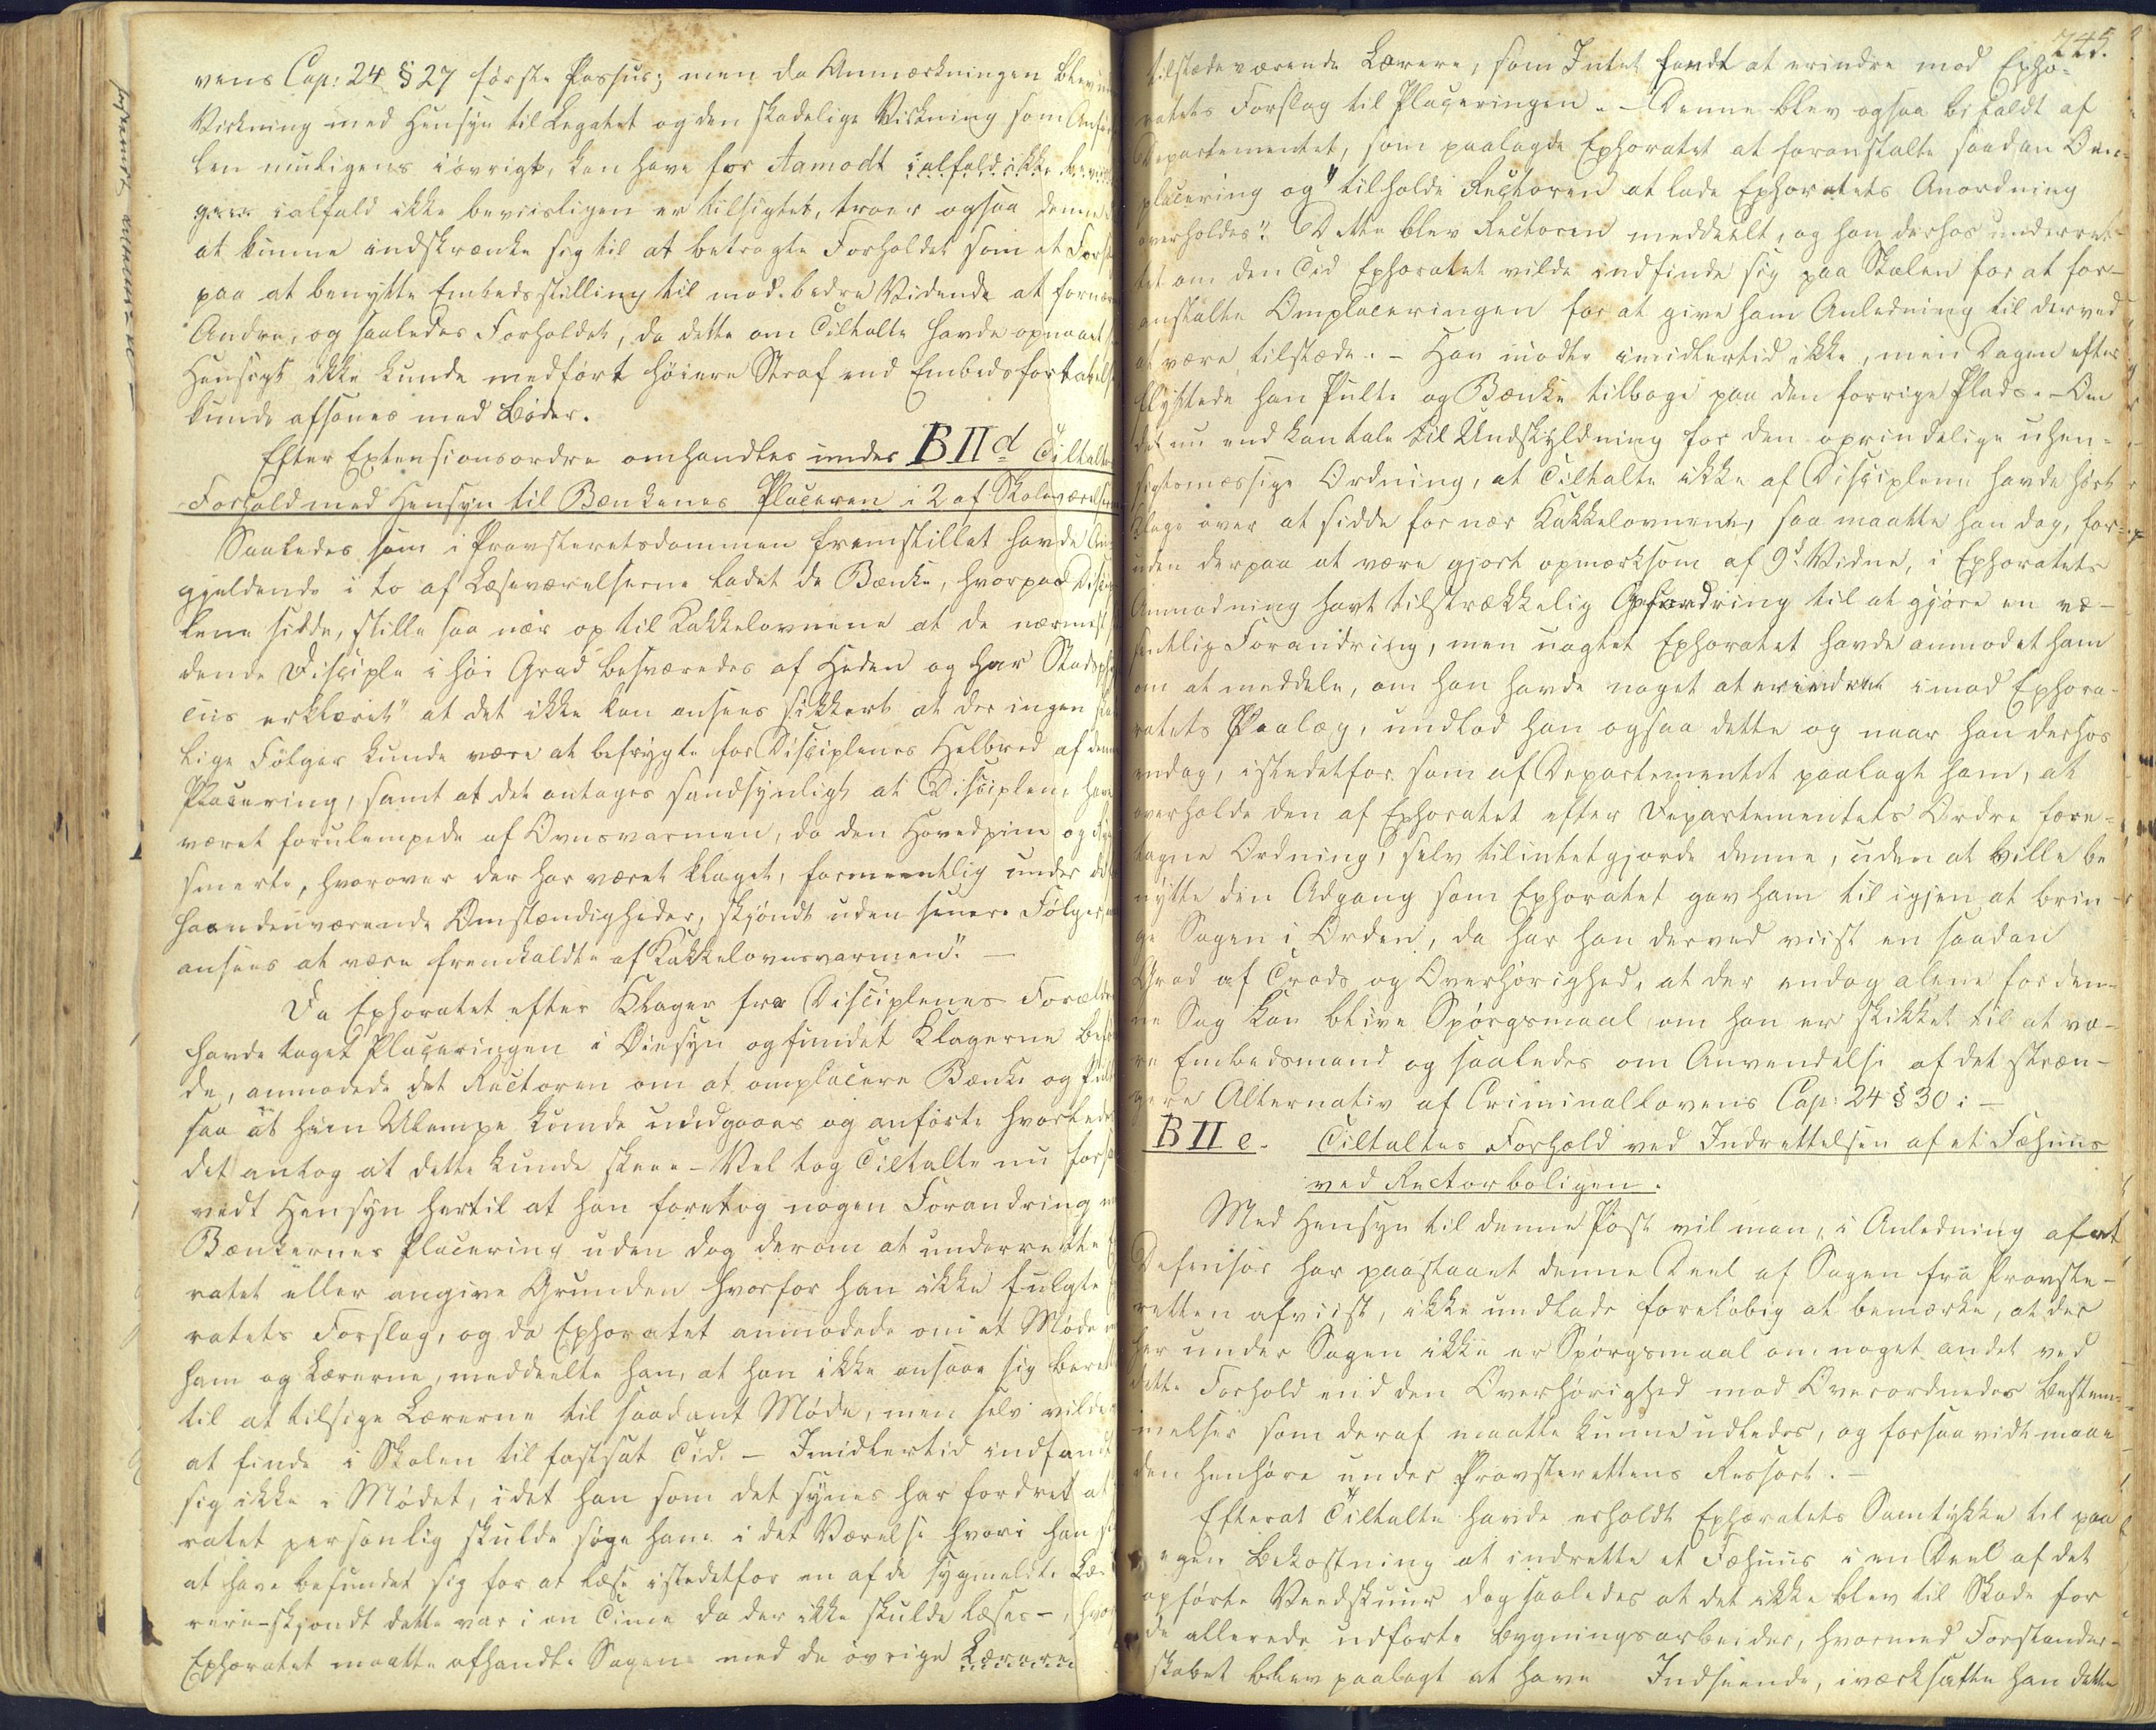 vens Cap: 24 § 27 første Passus; men da Anmærkningen blev
Virkning med Hensyn til Legatet og den skadelige Virkning som
len muligens iøvrigt, kan have for Aamodt ialfald ikke
ialfald ikke beviisligen er tilsigtet, troer ogsaa denne
at kunne indskrænke sig til at betragte Forholdet som et
paa at benytte Embedsstilling til mod bedre Vidende at
Andre, og saaledes Forholdet, da dette om Tiltalte havde opnaaet
Hensigt ikke kunde medført høiere Straf end Embedsfortabelse
kunde afsones med Bøder.
Efter Extensionsordre omhandles under B II d Tiltaltes
Forhold med Hensyn til Bænkenes Placeren i 2 af Skoleværelserne
Saaledes som i Provsteretsdommen fremstillet havde An
gjeldende i to af Læseværelserne ladet de Bænke, hvorpaa Discip
lene sidde, stille saa nær op til Kakkelovnene at de nærmest
dende Disciple i høi Grad besværedes af Heden og har Stadsphy
cus erklæret "at det ikke kan ansees sikkert at der ingen
lige Følger kunde være at befrygte for Disciplenes Helbred af denne
Placering, samt at det antages sandsynligt at Disciplene have
været forulempede af Ovnsvarmen, da den Hovedpine og
smerte, hvorover der har været klaget, formeentlig under de
haandenværende Omstændigheder, skjøndt uden senere Følger,
ansees at være fremkaldte af Kakkelovnsvarmen". —
Da Ephoratet efter Klager fra Disciplenes Forældre
havde taget Placeringen i Øiesyn og fundet Klagerne
de, anmodede det Rectoren om at omplacere Bænke og
saa at hiin Ulempe kunde undgaaes og anførte hvorledes
det antog at dette kunde skee. - Vel tog Tiltalte nu
vidt Hensyn hertil at han foretog nogen Forandring
Bænkernes Placering uden dog derom at underrette
ratet eller angive Grunden hvorfor han ikke fulgte
ratets Forslag, og da Ephoratet anmodede om et Møde
ham og Lærerne, meddeelte han, at han ikke ansaae sig
til at tilsige Lærerne til saadant Møde, men selv vilde
at finde i Skolen til fastsat Tid. - Imidlertid indfandt
sig ikke i Mødet, idet han som det synes har fordret at
ratet personlig skulde søge ham i det Værelse hvori han
at have befundet sig for at læse istedetfor en af de sygmeldte Læ
rere - skjøndt dette var i en Time da der ikke skulde læses -,
Ephoratet maatte afhandle Sagen med de øvrige Lærere
245.
tilstædeværende Lærere, som Intet fandt at erindre mod Epho-
ratets Forslag til Placeringen. - Denne blev ogsaa bifaldt af
Departementet, som paalagde Ephoratet at foranstalte saadan Om-
placering og "tilholde Rectoren at lade Ephoratets Anordning
overholdes". Dette blev Rectoren meddeelt, og han derhos underret-
tet om den Tid Ephoratet vilde indfinde sig paa Skolen for at for-
anstalte Omplaceringen for at give ham Anledning til derved
at være tilstæde. - Han mødte imidlertid ikke, men Dagen efter
flyttede han Pulte og Bænke tilbage paa den forrige Plads. - Om
det nu end kan tale til Undskyldning for den oprindelige uhen-
sigtsmæssige Ordning, at Tiltalte ikke af Disciplene havde hørt
Klage over at sidde for nær Kakkelovnene, saa maatte han dog, for-
uden derpaa at være gjort opmærksom af 9d Vidne, i Ephoratets
Anmodning havt tilstrækkelig Opfordring til at gjøre en væ-
sentlig Forandring, men uagtet Ephoratet havde anmodet ham
om at meddele, om han havde noget at erindre imod Ephora-
ratets Paalæg, undlod han ogsaa dette og naar han derhos
endog, istedetfor som af Departementet paalagt ham, at
overholde den af Ephoratet efter Departementets Ordre fore-
tagne Ordning, selv tilintetgjorde denne, uden at ville be
nytte den Adgang som Ephoratet gav ham til igjen at brin-
ge Sagen i Orden, da har han derved viist en saadan
Grad af Trods og Overhørighed, at der endog alene for den-
ne Sag kan blive Spørgsmaal om han er skikket til at væ-
re Embedsmand og saaledes om Anvendelse af det stræn-
gere Alternativ af Criminallovens Cap: 24 § 30: —
B II e. Tiltaltes Forhold ved Indrettelsen af et Fæhuus
ved Rectorboligen.
Med Hensyn til denne Post vil man, i Anledning af at
Defensor har paastaaet denne Deel af Sagen fra Provste-
retten afviist, ikke undlade foreløbig at bemærke, at der
her under Sagen ikke er Spørgsmaal om noget andet ved
dette Forhold end den Overhørighed mod Overordnedes Bestem-
melser som deraf maatte kunne udledes, og forsaavidt maae
den henhøre under Provsterettens Ressort. —
Efterat Tiltalte havde erholdt Ephoratets Samtykke til paa
egen Bekostning at indrette et Fæhuus i en Deel af det
opførte Vedskuur dog saaledes at det ikke blev til Skade for
de allerede udførte Bygningsarbeider, hvormed Forstander-
skabet blev paalagt at have Indseende, iværksatte han dette